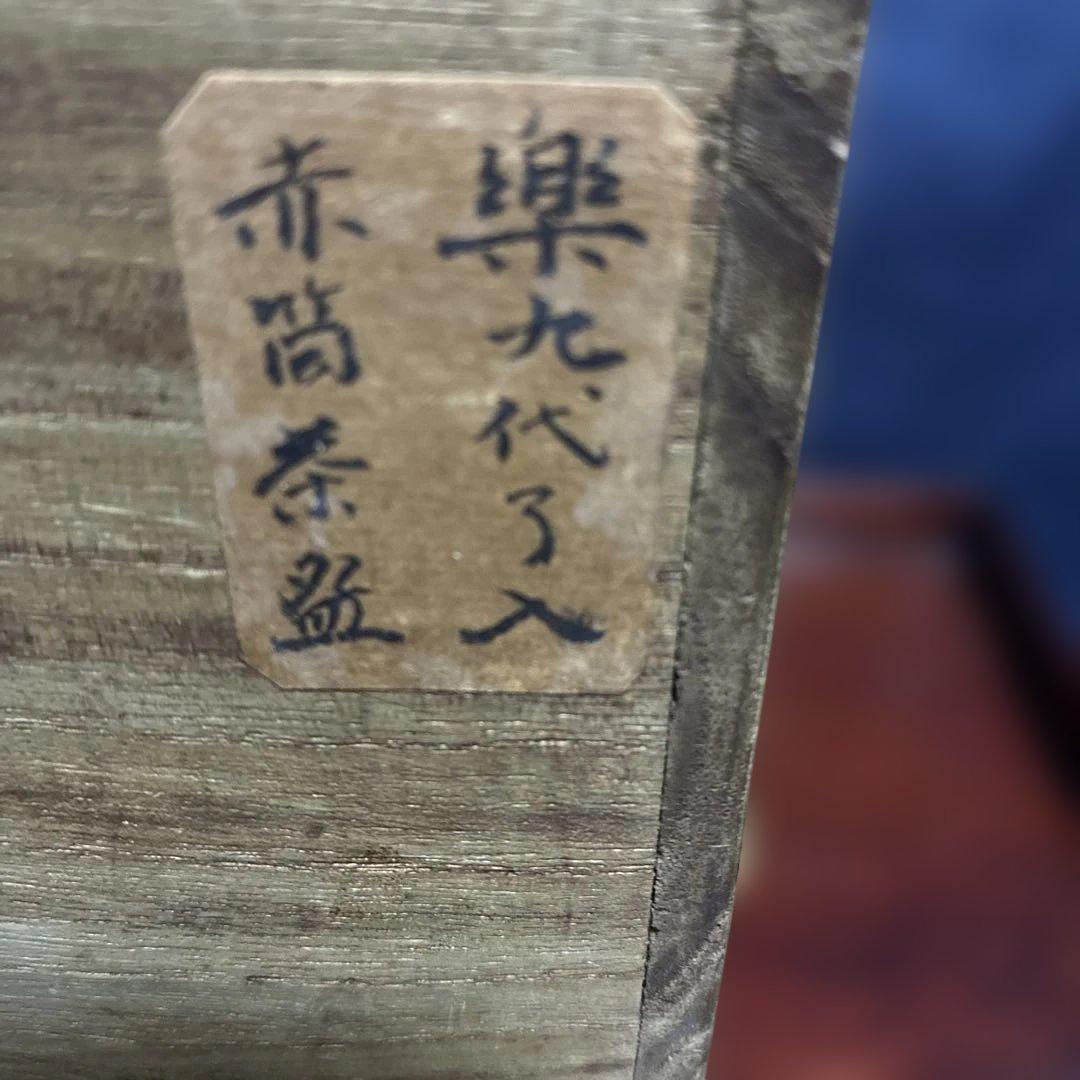 樂九代了入
赤筒茶盌